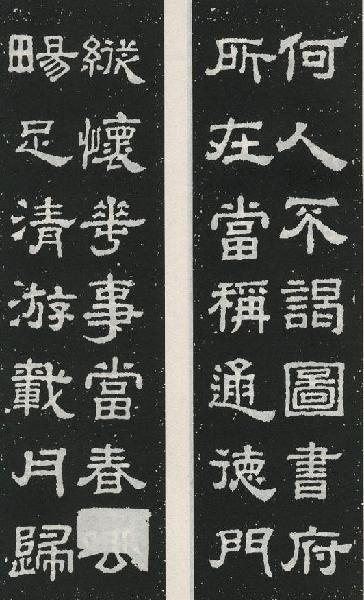 何人不謁圖書府
所在當稱通德門
縱懷華事當春
畼足清游載月歸